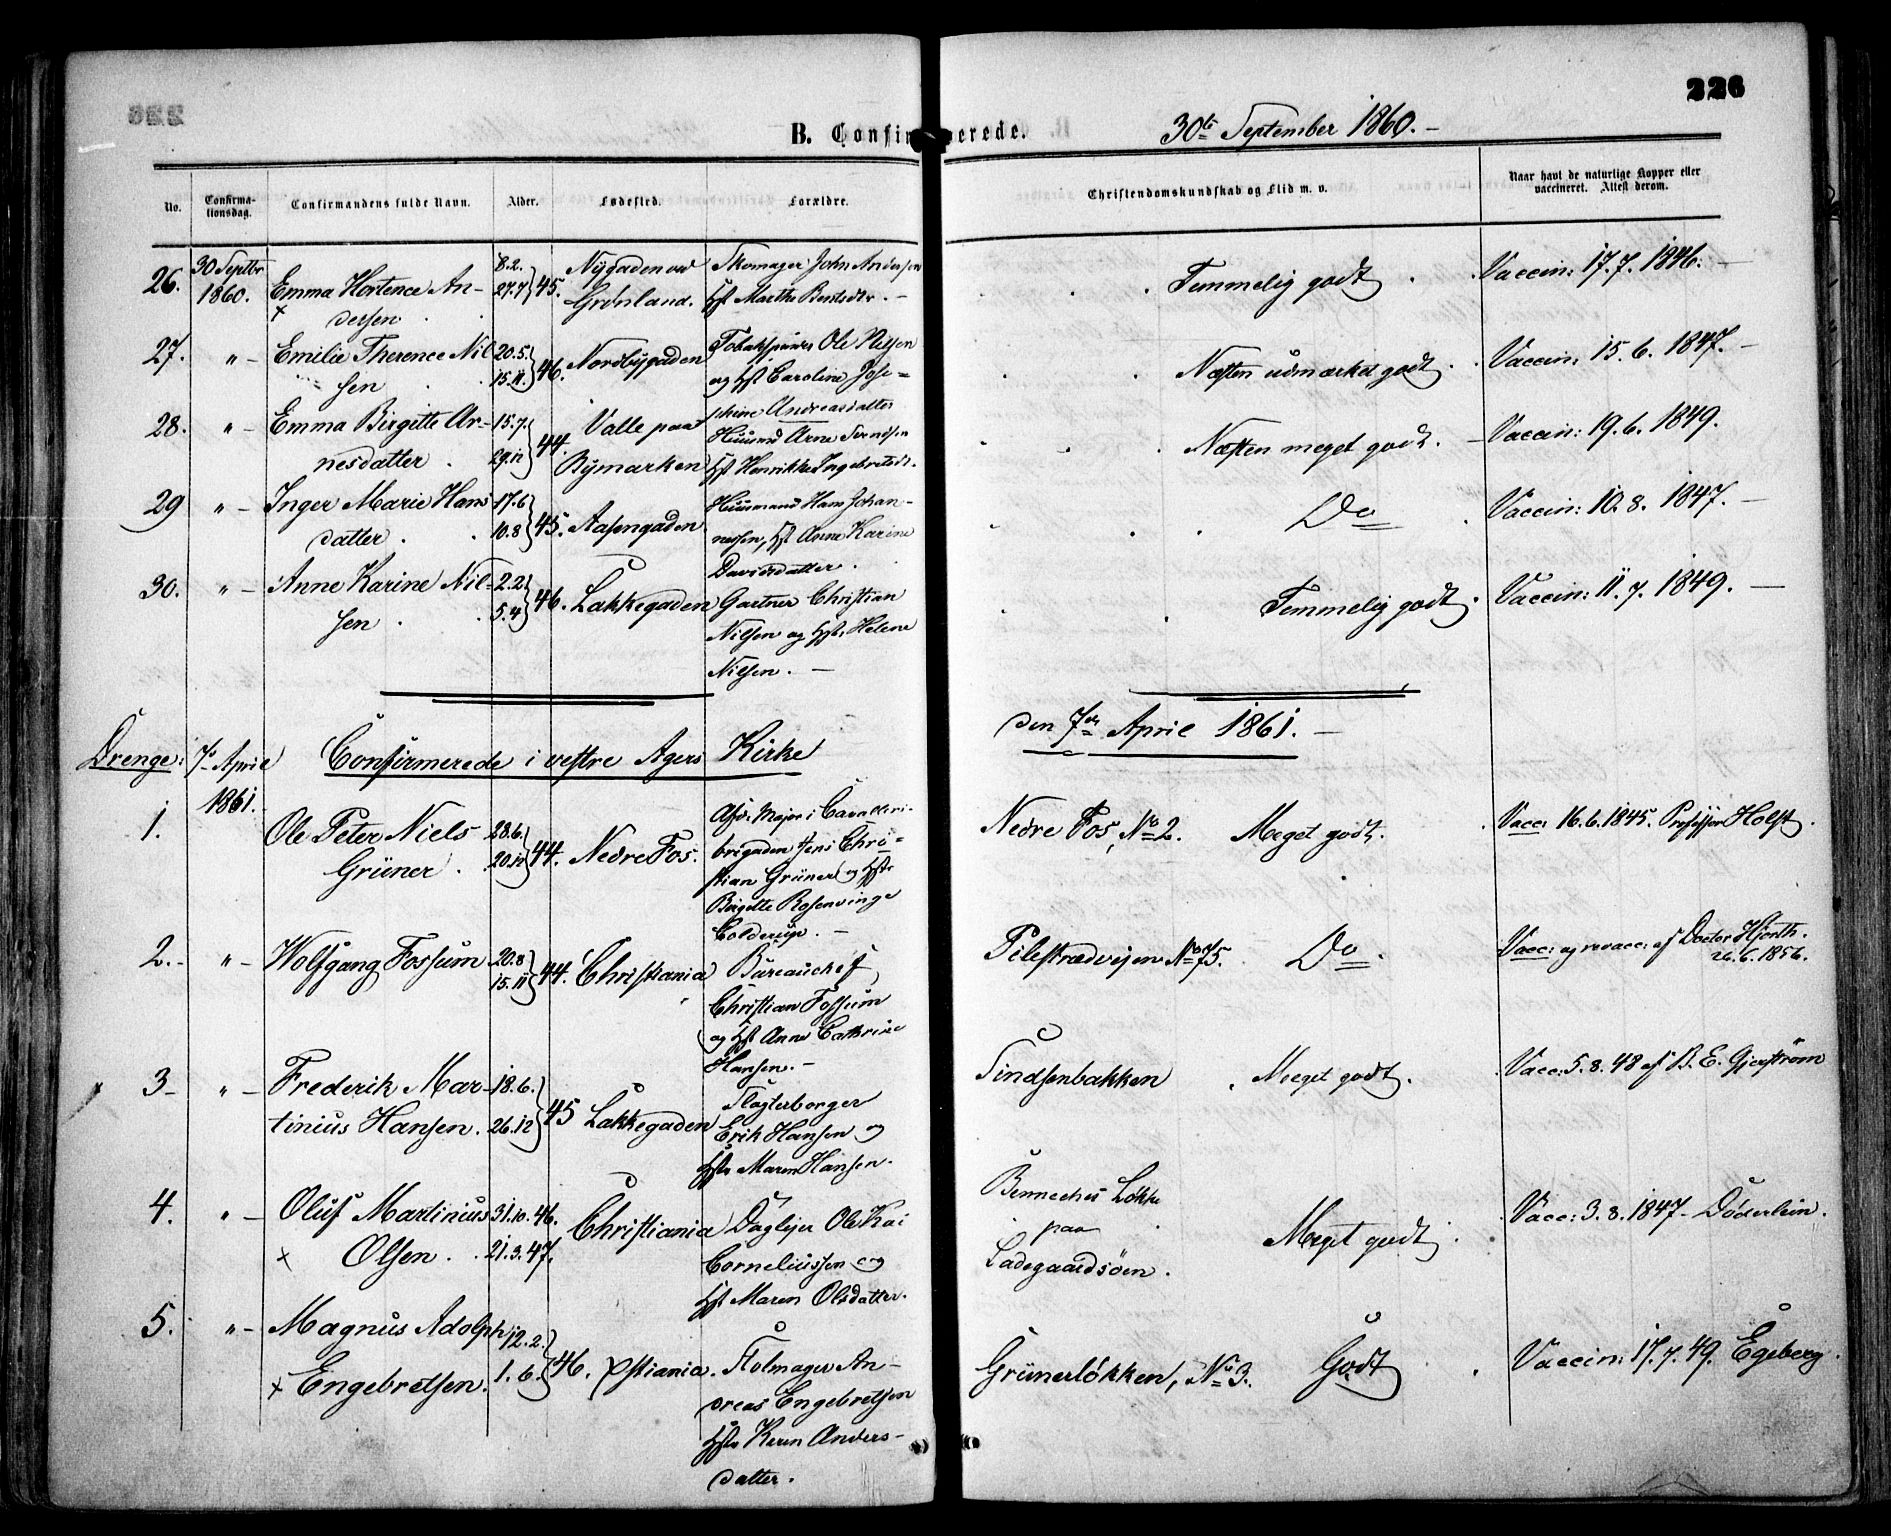 226
B. Confirmerede. 30te September 1860.-
No. Confirmationsdag. Confirmandens fulde Navn. Alder. Fødested. Forældre. Christendomskundskab og Flid m. v. Naar havt de naturlige Kopper eller vaccineret. Attest derom.
26. 30 Septbr 8.2. Nygaden ved Skomager John Andersen
1860. Emma Hortence An- 27.7 45. Grønland. Hst Marthe Berntsdtr. - Temmelig godt. Vaccin: 17.7. 1846. -
x dersen
27. " - Emilie Therence Nil- 20.5. 46. Nordbygaden Tobakspinder Ole Nilsen Næsten udmærket godt. Vaccin: 15.6. 1847. -
sen 15.11. og Hst Caroline Jose=
phine Andreasdatter
28. " - Emma Birgitte Ar- 15.7. 44. Valle paa Huusmd Arne Næsten meget godt. Vaccin: 19.6. 1849.
nesdatter. 29.12 Bymarken Hst Henrikke Ingebretsdt.
29 " - Inger Marie Hans 17.6 45. Aasengaden Huusmand Hans Johan- Do Vaccin: 10.8. 1847. -
datter. 10.8 nessen, Hst Anne Karine
Davidsdatter.
30. " - Anne Karine Nil- 2.2 46. Lakkegaden Gartner Christian Temmelig godt. Vaccin: 11.7. 1849. -
sen 5.4 Nilsen og Hst. Helene
Nilsen. -
Drenge: 7de April Confirmerede i vestre Agers Kirke den 7de April 1861. -
1861.
1. Ole Peter Niels 28.6. 44. Nedre Fos. Afd. Major i Cavalleri- Nedre Fos, No 2. Meget godt. Vacc: 16.6.1845. Professor Holst.
Grüner. 20.12 brigaden Jens Chri=
stian Grüner og Hst
Birgitte Rosenvinge
Colderup. -
2. - " - Wolfgang Fossum 20.8 44. Christiania Büreauchef Pilestrædveien No 75. Do. Vacc: og revacc: af Doctor Hjorth.
15.11 Christian Fossum 26.6.1856.
og Hst Anne Cathrine
Hansen. -
3 - " - Frederik Mar- 18.6. 45 Lakkegaden Slagterborger Sindsenbakken Meget godt. Vacc: 5.8.48 af B. E. Gjerstrøm
tinius Hansen. 26.12 Erik Hansen og
Hst Maren Hansen.
4. " - Oluf Martinius 31.10.46. Christiania Daglejer Ole Kai Benneches Løkke
paa Meget godt. Vacc: 3.8.1847 - Døderlein.
x Olsen. 21.3.47. Corneliussen og Ladegaardsøen.
Hst Maren Olsdatter.
5. " - Magnus Adolph 12.2. 46. Xstiania. Stolmager An- Grünerløkken, No 3. Godt Vaccin: 17.7.49. Egeberg.
x Engebretsen. 1.6. dreas Engebretsen
Hst Karen Anders-
datter.